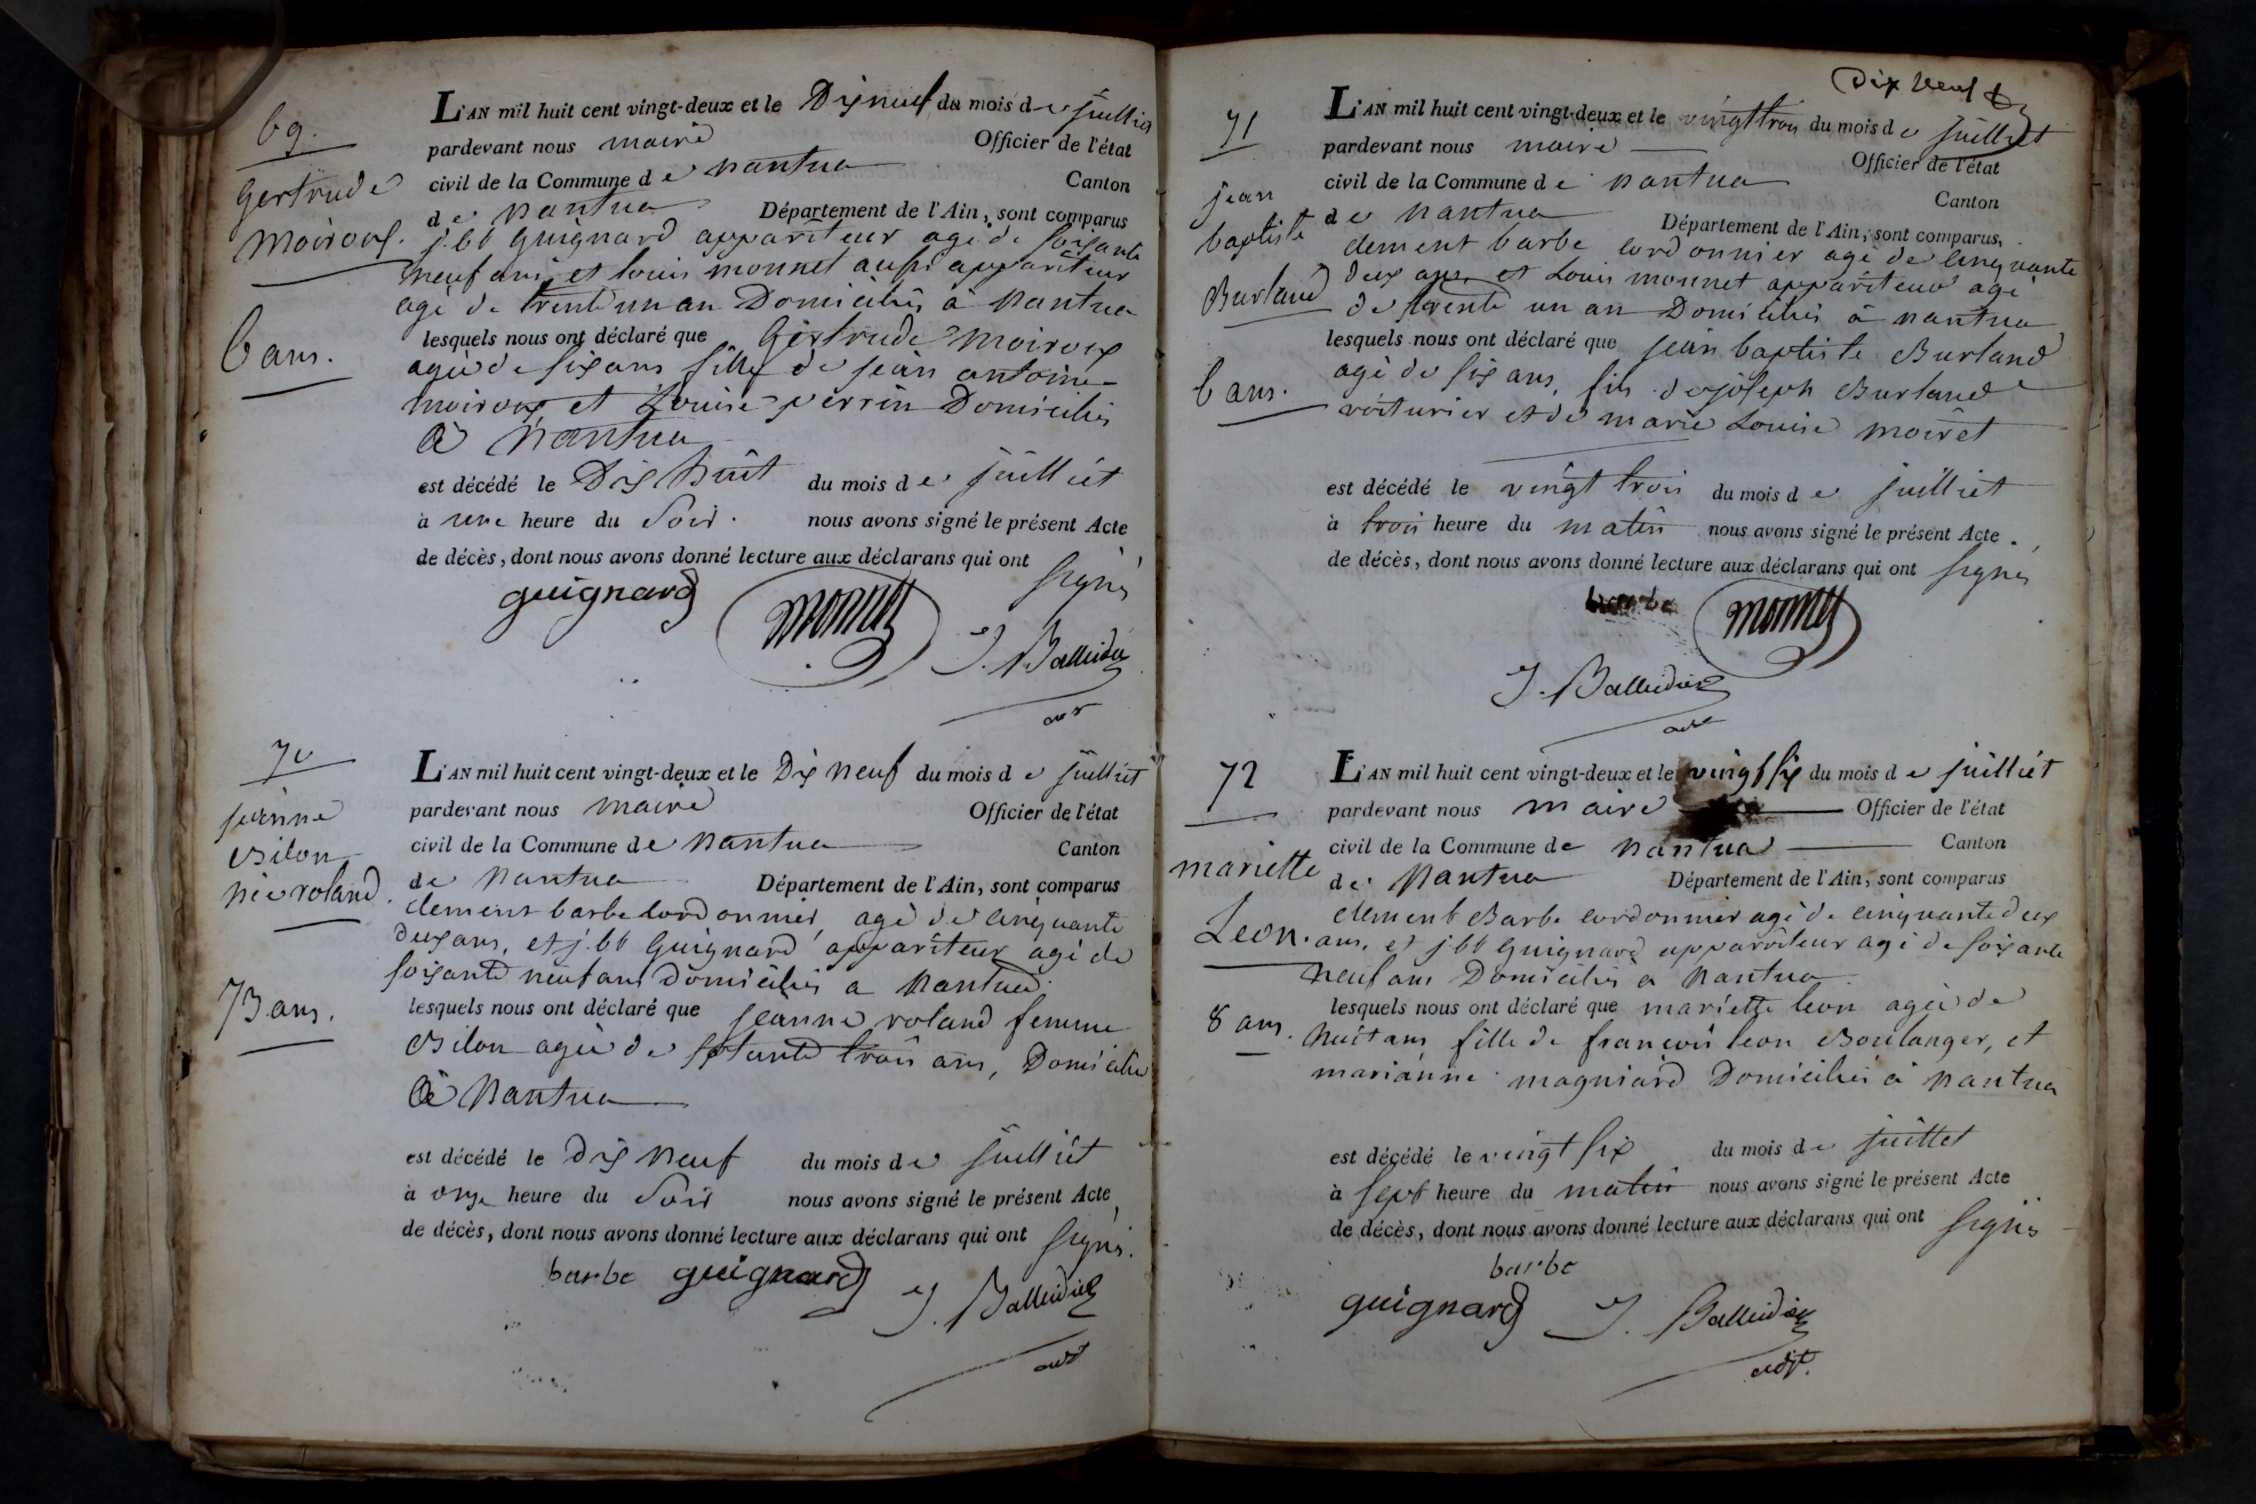 69.
Gertrude
Moiroux.
6 ans.
L'AN mil huit cent vingt-deux et le Dixneuf du mois de juilliet
pardevant nous maire Officier de l'état
civil de la Commune de nantua Canton
de nantua Département de l'Ain, sont comparus
j. bt Guignard appariteur agé de soixante
neuf ans, et louis monnet aussi appariteur
agé de trente un an Domiciliés à nantua
lesquels nous ont déclaré que Gertrude Moiroux
agée de six ans fille de jean antoine
moiroux et Louise perrin Domiciliés
à Nantua
est décédé le Dix huit du mois de juilliet
à une heure du Soir. nous avons signé le présent Acte
de décès, dont nous avons donné lecture aux déclarans qui ont signés
guignard monnet J. Balleidier
adt
70
jeanne
Bilon
née roland.
73 ans.
L'AN mil huit cent vingt-deux et le Dix neuf du mois de juilliet
pardevant nous maire Officier de l'état
civil de la Commune de nantua Canton
de nantua Département de l'Ain, sont comparus
clement barbe cordonnier, agé de cinquante
deux ans, et j. bt Guignard appariteur agé de
soixante neuf ans Domiciliés a nantua.
lesquels nous ont déclaré que jeanne roland femme
Bilon agée de septante trois ans, Domiciliée
à Nantua
est décédé le dix neuf du mois de juilliet
à onze heure du Soir nous avons signé le présent Acte,
de décès, dont nous avons donné lecture aux déclarans qui ont signés.
barbe guignard J. Balleidier
adt
Dix neuf
71
jean
baptiste
Burland
6 ans.
L'AN mil huit cent vingt-deux et le vingt trois du mois de juilliet
pardevant nous maire Officier de l'état
civil de la Commune de nantua Canton
de nantua Département de l'Ain, sont comparus,
clement barbe cordonnier agé de cinquante
deux ans, et Louis monnet appariteur agé
de trente un an Domiciliés à nantua
lesquels nous ont déclaré que jean baptiste Burland
agé de six ans, fils de joseph Burland
voiturier et de marie Louise moiret
est décédé le vingt trois du mois de juilliet
à trois heure du matin nous avons signé le présent Acte.
de décès, dont nous avons donné lecture aux déclarans qui ont signés
barbe monnet
J. Balleidier
adt
72
mariette
Leon.
8 ans.
L'AN mil huit cent vingt-deux et le vingt six du mois de juilliet
pardevant nous maire Officier de l'état
civil de la Commune de nantua Canton
de Nantua Département de l'Ain, sont comparus
clement Barbe cordonnier agé de cinquante deux
ans, et j. bt Guignard appariteur agé de soixante
neuf ans Domiciliés à Nantua
lesquels nous ont déclaré que mariette leon agée de
huit ans fille de françois leon Boulanger, et
marianne magniard Domiciliés à nantua
est décédé le vingt six du mois de juillet
à sept heure du matin nous avons signé le présent Acte
de décès, dont nous avons donné lecture aux déclarans qui ont signés
barbe
guignard J. Balleidier
adjt.